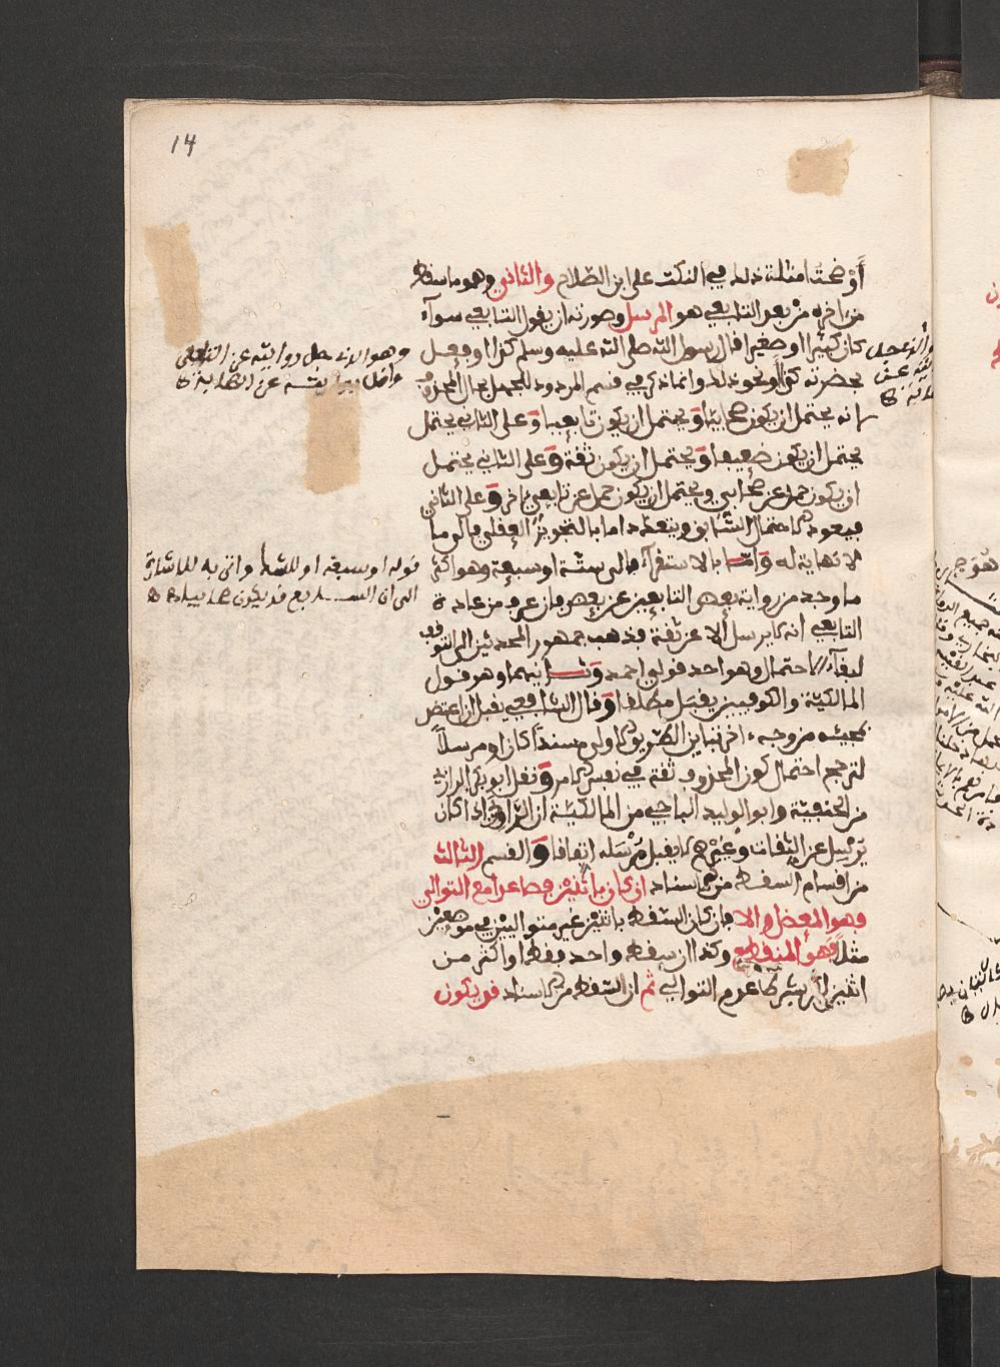 14
أوضحت امثلة ذلك في النكت على ابن الصلاح والثاني وهو ما سقط
من اخره من بعد التابعي هو المرسل وصورته ان يقول التابعي سوآء
كان كبيرا او صغيرا قال رسول الله صلى الله عليه وسلم كذا او فعل
بحضرته كذا ونحو ذلك وانما ذكر في قسم المردود للجهل بحال المحذوف
لانه يحتمل ان يكون صحابيا ويحتمل ان يكون تابعيا وعلى الثاني يحتمل
يحتمل ان يكون ضعيفا ويحتمل ان يكون ثقة وعلى الثاني يحتمل
ان يكون حمل عن صحابي ويحتمل ان يكون حمل عن تابعي ءاخر وعلى الثاني
فيعود الاحتمال السابق ويتعدد اما بالتجويز العقلي فالى ما
لا نهاية له واما بالاستقرآء فالى ستة او سبعة وهو اكثر
ما وجد من رواية بعض التابعين عن بعض فان عرف من عادة
التابعي انه لا يرسل الا عن ثقة فذهب جمهور المحدثين الى التوقف
لبقآء الاحتمال وهو احد قولي احمد وثانيهما وهو قول
المالكية والكوفيين يقبل مطلقا وقال الشافعي يقبل ان اعتضد
بمجيئه من وجه ءاخر تباين الطريق الاولى مسندا كان او مرسلا
لترجح احتمال كون المحذوف ثقة في نفس الامر ونقل ابو بكر الرازي
من الحنفية وابو الوليد الباجي من المالكية ان الراوي اذا كان
يرسل عن الثقات وغيرهم لا يقبل مرسله اتفاقا والقسم الثالث
من اقسام السقط من الاسناد ان كان باثنين فصاعدا مع التوالي
فهو المعضل والا فان كان السقط باثنين غير متواليين في موضعين
مثلا فهو المنقطع وكذا ان سقط واحد فقط او اكثر من
اثنين لكن بشرط عدم التوالي ثم ان السقط من الاسناد قد يكون
وهو الذي جل روايته عن التابعي
واقل روايته عن الصحابة
قوله او سبعة او للشك واتى به للاشارة
الى ان السابع قد يكون صحابيا